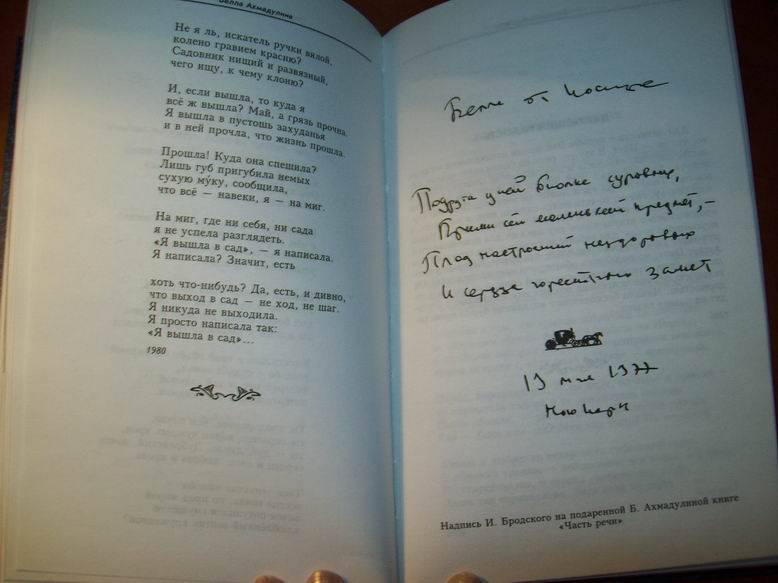 Белла Ахмадулина
Не я ль, искатель ручки вялой,
колено гравием красню?
Садовник нищий и развязный,
чего ищу, к чему клоню?
И, если вышла, то куда я
всё ж вышла? Май, а грязь прочна.
Я вышла в пустошь захуданья
и в ней прочла, что жизнь прошла.
Прошла! Куда она спешила?
Лишь губ пригубила немых
сухую му́ку, сообщила,
что всё — навеки, я — на миг.
На миг, где ни себя, ни сада
я не успела разглядеть.
«Я вышла в сад», — я написала.
Я написала? Значит, есть
хоть что-нибудь? Да, есть, и дивно,
что выход в сад — не ход, не шаг.
Я никуда не выходила.
Я просто написала так:
«Я вышла в сад»...
1980
Белле от Иосифа
Подруга дней более суровых,
Прими сей маленький предмет, —
Плод настроений нездоровых
И сердца горестных замет
19 мая 1977
Нью Йорк
Надпись И. Бродского на подаренной Б. Ахмадулиной книге
«Часть речи»